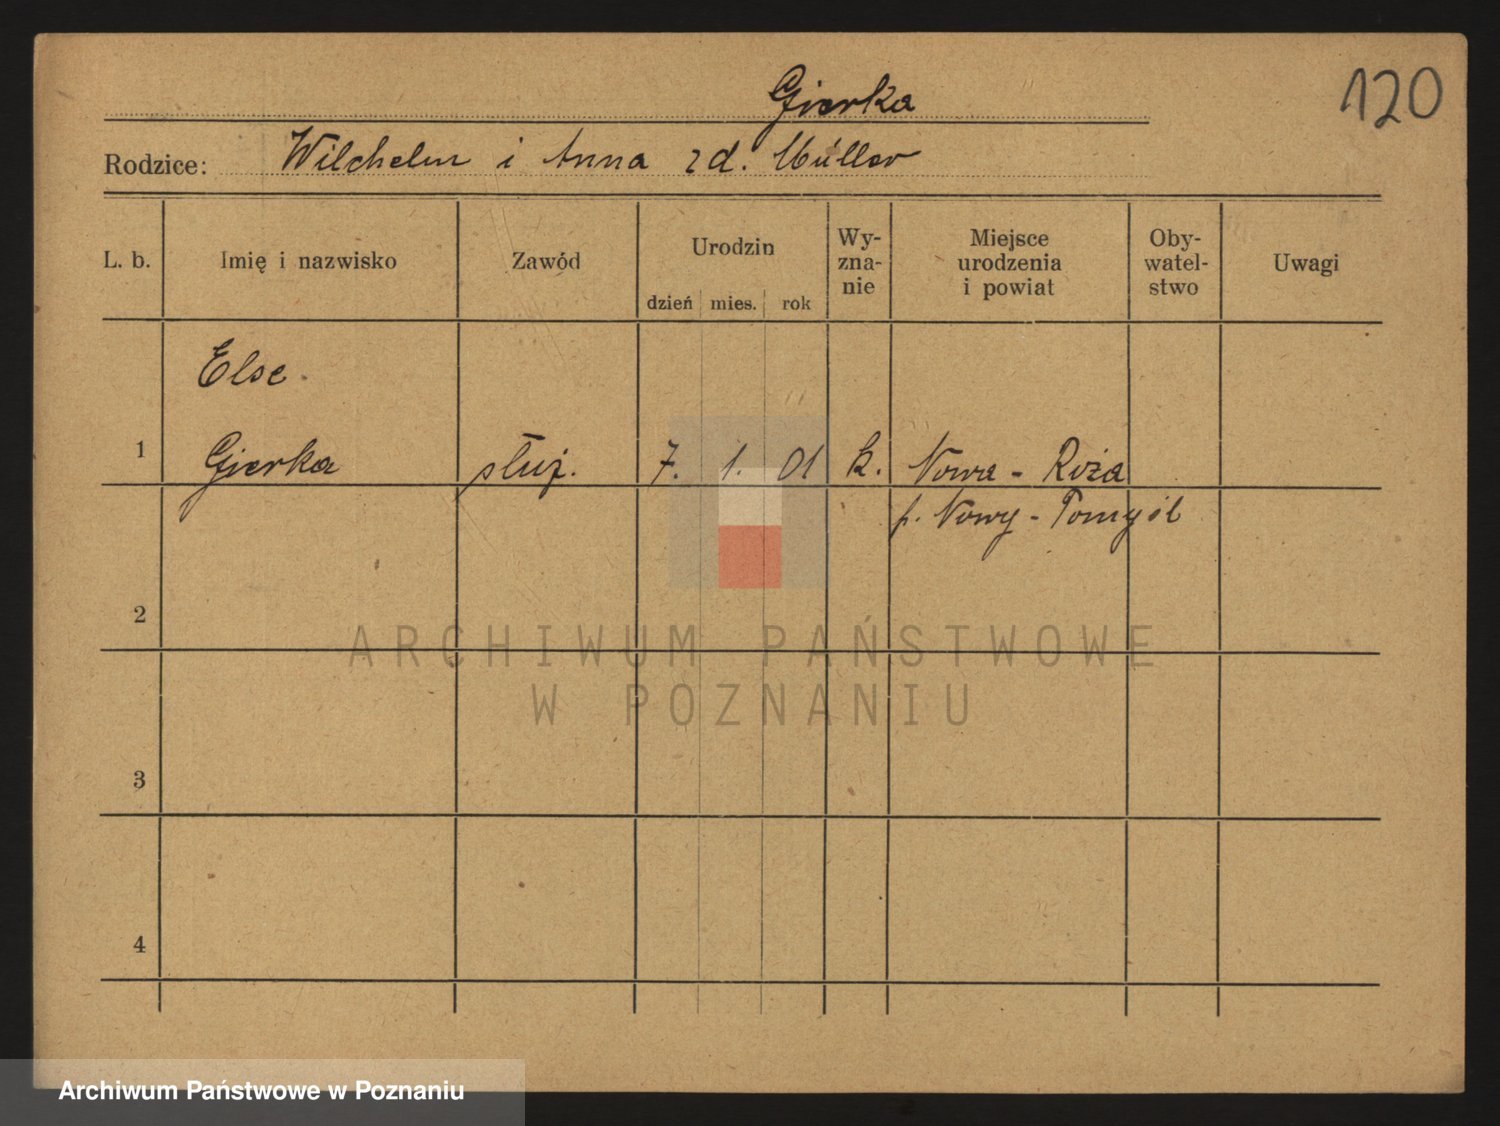 120
Gierka
Rodzice: Wilchelm i Anna zd. Müller
L. b. Imię i nazwisko Zawód Urodzin dzień mies. rok Wy-zna-nie Miejsce urodzenia i powiat Oby-watel-stwo Uwagi
Else
1 Gierka służ. 7. 1. 01 k. Nowa - Róża
p. Nowy - Tomyśl
2
ARCHIWUM PAŃSTWOWE
W POZNANIU
3
4
Archiwum Państwowe w Poznaniu